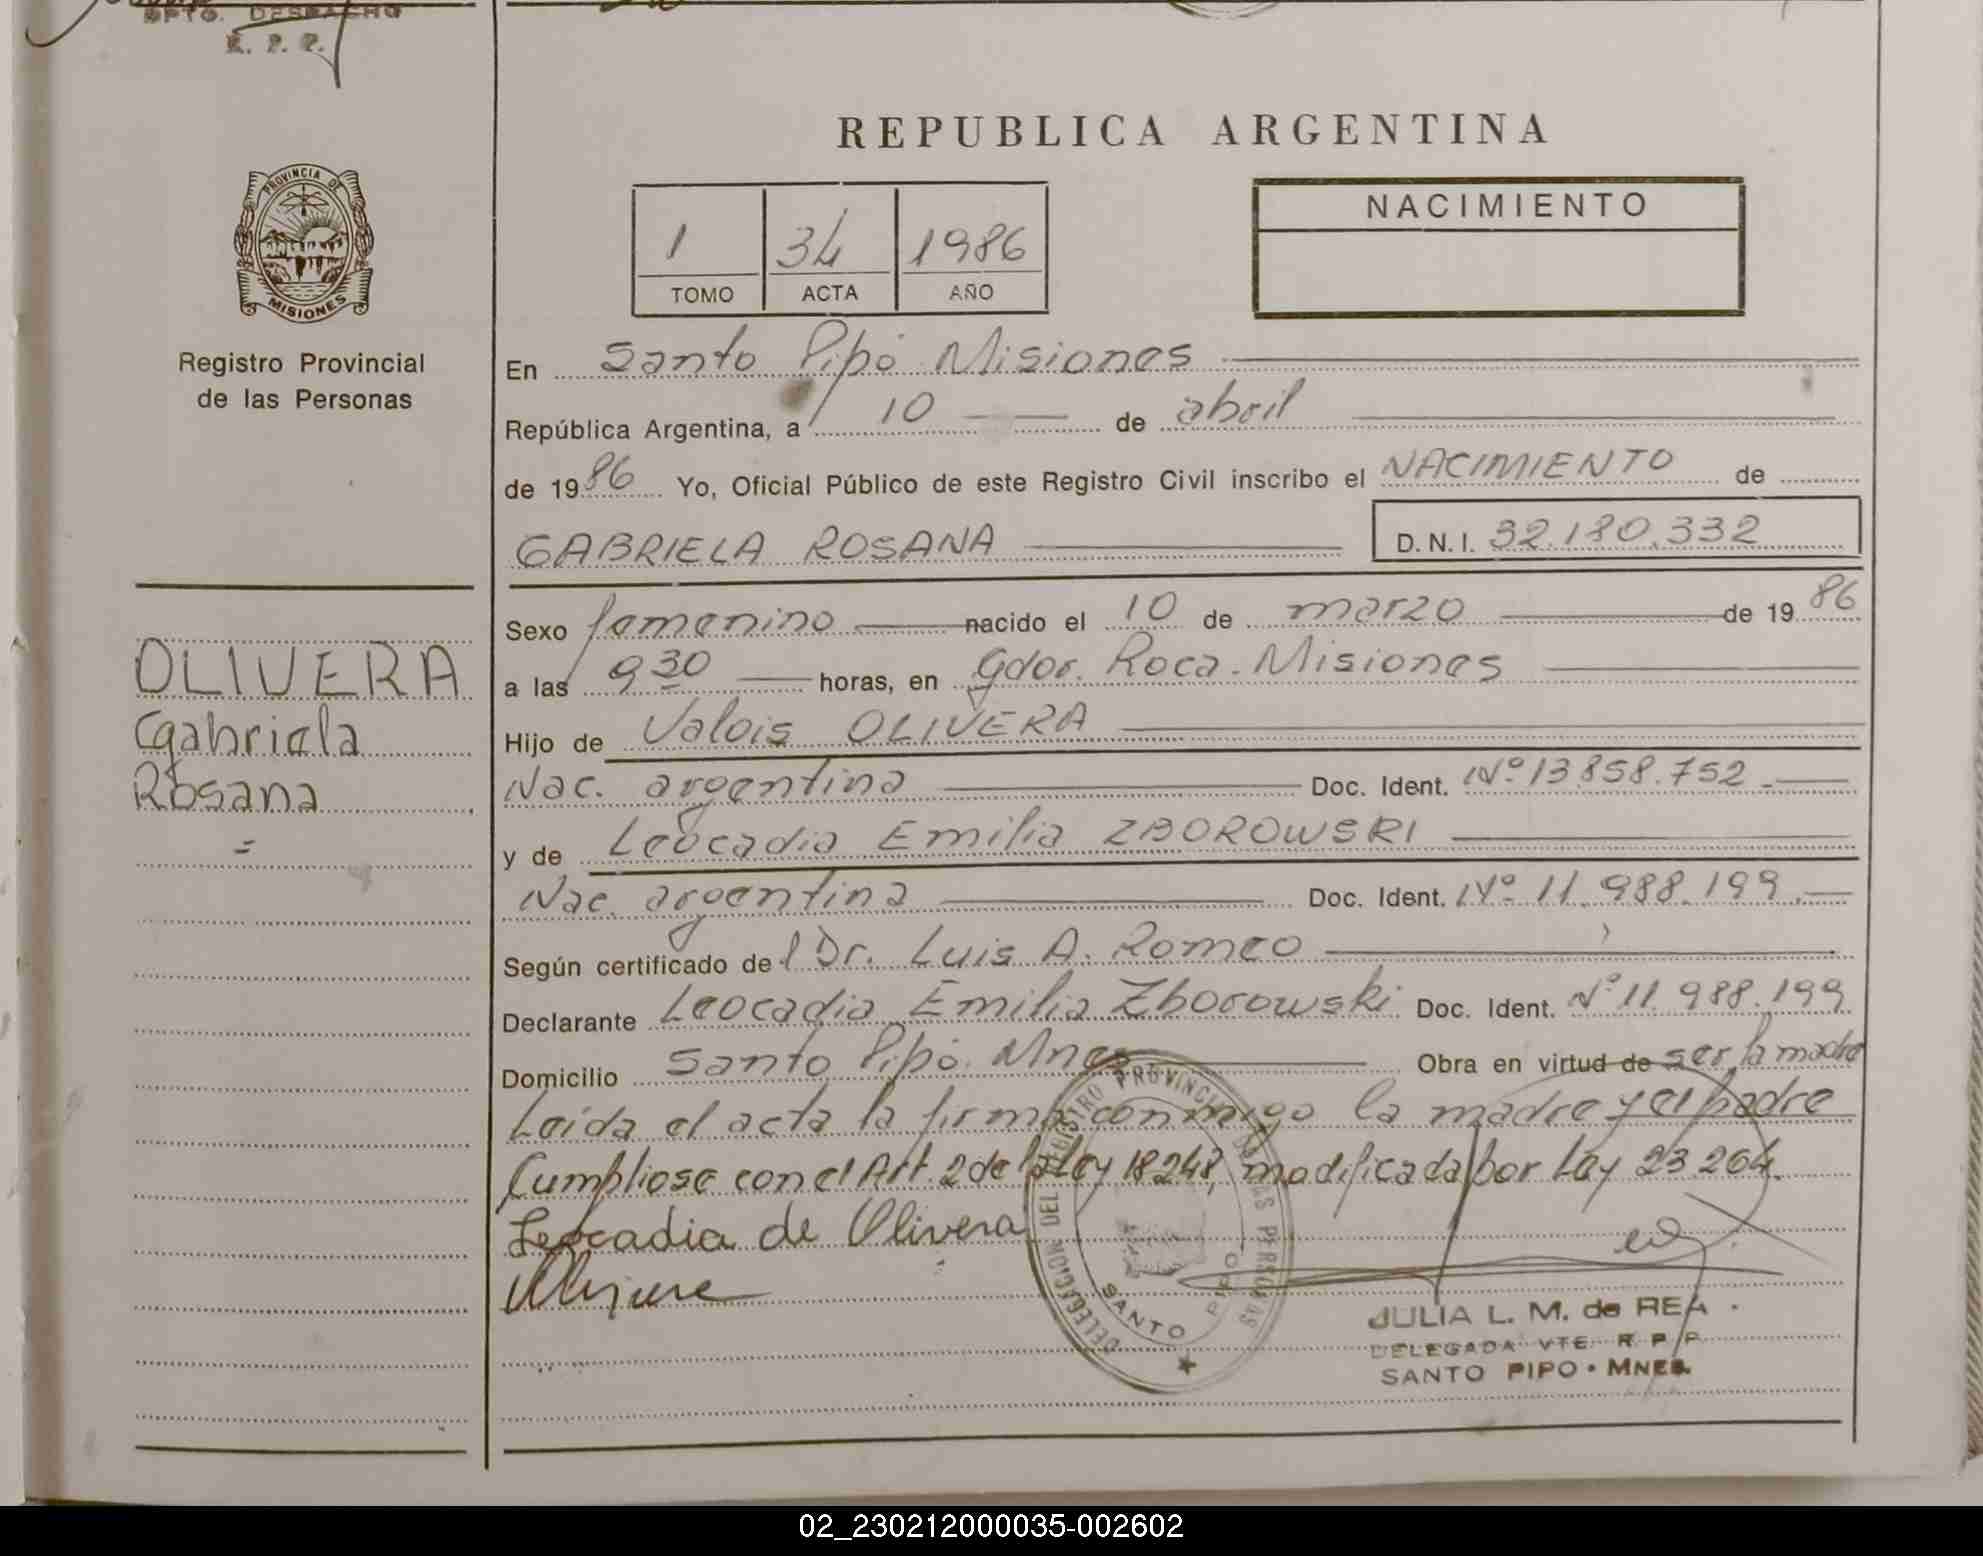 DPTO. DESPACHO
R. P. P.
PROVINCIA DE
MISIONES
Registro Provincial
de las Personas
OLIVERA
Gabriela
Rosana
=
REPUBLICA ARGENTINA
1 34 1986
TOMO ACTA AÑO
NACIMIENTO
En Santo Pipó Misiones
República Argentina, a 10 de abril
de 1986 Yo, Oficial Público de este Registro Civil inscribo el NACIMIENTO de
GABRIELA ROSANA D.N.I. 32.180.332
Sexo femenino nacido el 10 de marzo de 1986
a las 9 30 horas, en Gdor. Roca. Misiones
Hijo de Valois OLIVERA
Nac. argentina Doc. Ident. Nº 13.858.752.
y de Leocadia Emilia ZBOROWSKI
Nac. argentina Doc. Ident. Nº 11.988.199.
Según certificado del Dr. Luis A. Romeo
Declarante Leocadia Emilia Zborowski Doc. Ident. Nº 11.988.199
Domicilio Santo Pipó. Mnes Obra en virtud de ser la madre
Leída el acta la firma conmigo la madre y el padre
Cumpliose con el Art. 2 de la Ley 18248, modificada por Ley 23264.
Leocadia de Olivera
DELEGACION DEL REGISTRO PROVINCIAL DE LAS PERSONAS
SANTO PIPO
JULIA L. M. de REA
DELEGADA VTE. R. P. P.
SANTO PIPO - MNES.
02_230212000035-002602